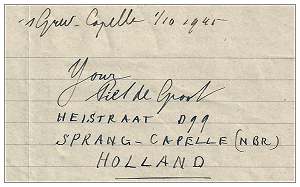 s Grev-Capelle 1/10 1945
Your
Piet de Groot
HEISTRAAT D99
SPRANG-CAPELLE (NBR)
HOLLAND